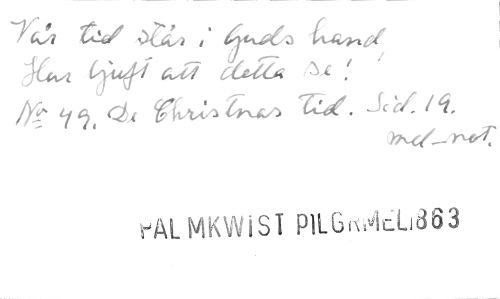 Vår tid står i Guds hand,
Hur ljuft att detta se!
No 49. De Christnas tid. Sid. 19.
mel-not.
PALMKWIST PILGR.MEL.1863